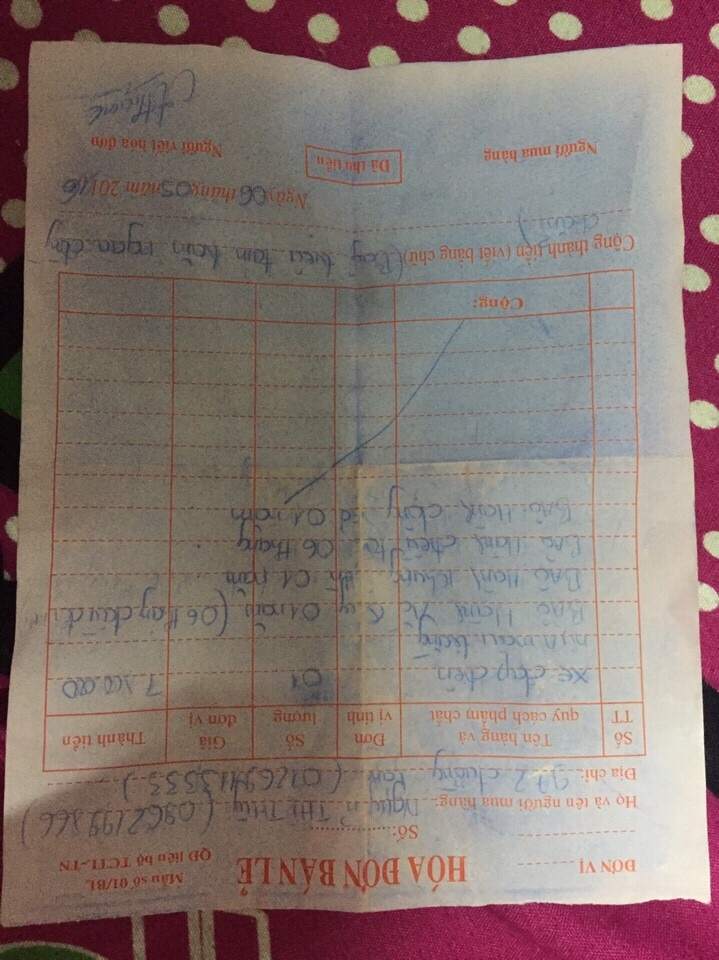 ĐƠN VỊ
HÓA ĐƠN BÁN LẺ
Mẫu số 01/BL
QĐ liên bộ TCTL-TN
Số:
Họ và tên người mua hàng: Nguyễn THỊ THU (0962199866)
Địa chỉ: 92.2 (01269413333)
Số TT
Tên hàng và quy cách phẩm chất
Đơn vị tính
Số lượng
Giá đơn vị
Thành tiền
xe đạp điện 01
BẢO Hành Ắc Quy 01 năm (06 tháng đầu
BẢO Hành khung 01 năm
BẢO Hành 06 tháng
BẢO Hành động cơ 01 năm
Cộng:
Cộng thành tiền (viết bằng chữ) (Bảy triệu tám trăm ngàn
Ngày 06 tháng 05 năm 2016
Người mua hàng
Đã thu tiền
Người viết hóa đơn